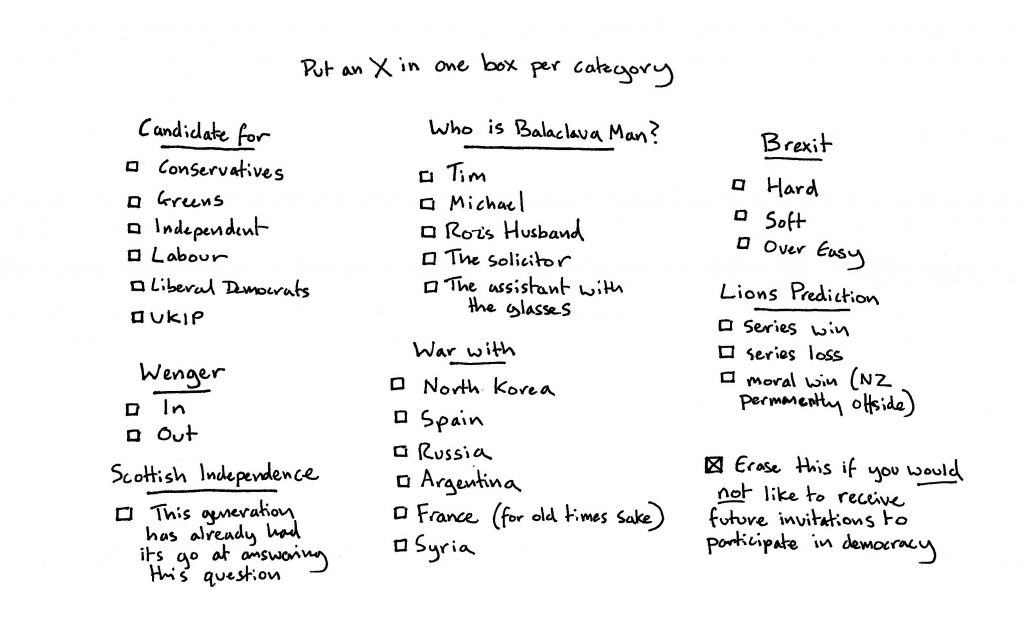 Put an X in one box per category
Candidate for
Conservatives
Greens
Independent
Labour
Liberal Democrats
UKIP
Wenger
In
Out
Scottish Independence
This generation
has already had
its go at answering
this question
Who is Balaclava Man?
Tim
Michael
Roz's Husband
The solicitor
The assistant with
the glasses
War with
North Korea
Spain
Russia
Argentina
France (for old times sake)
Syria
Brexit
Hard
Soft
Over Easy
Lions Prediction
series win
series loss
moral win (NZ
permanently offside)
Erase this if you would
not like to receive
future invitations to
participate in democracy